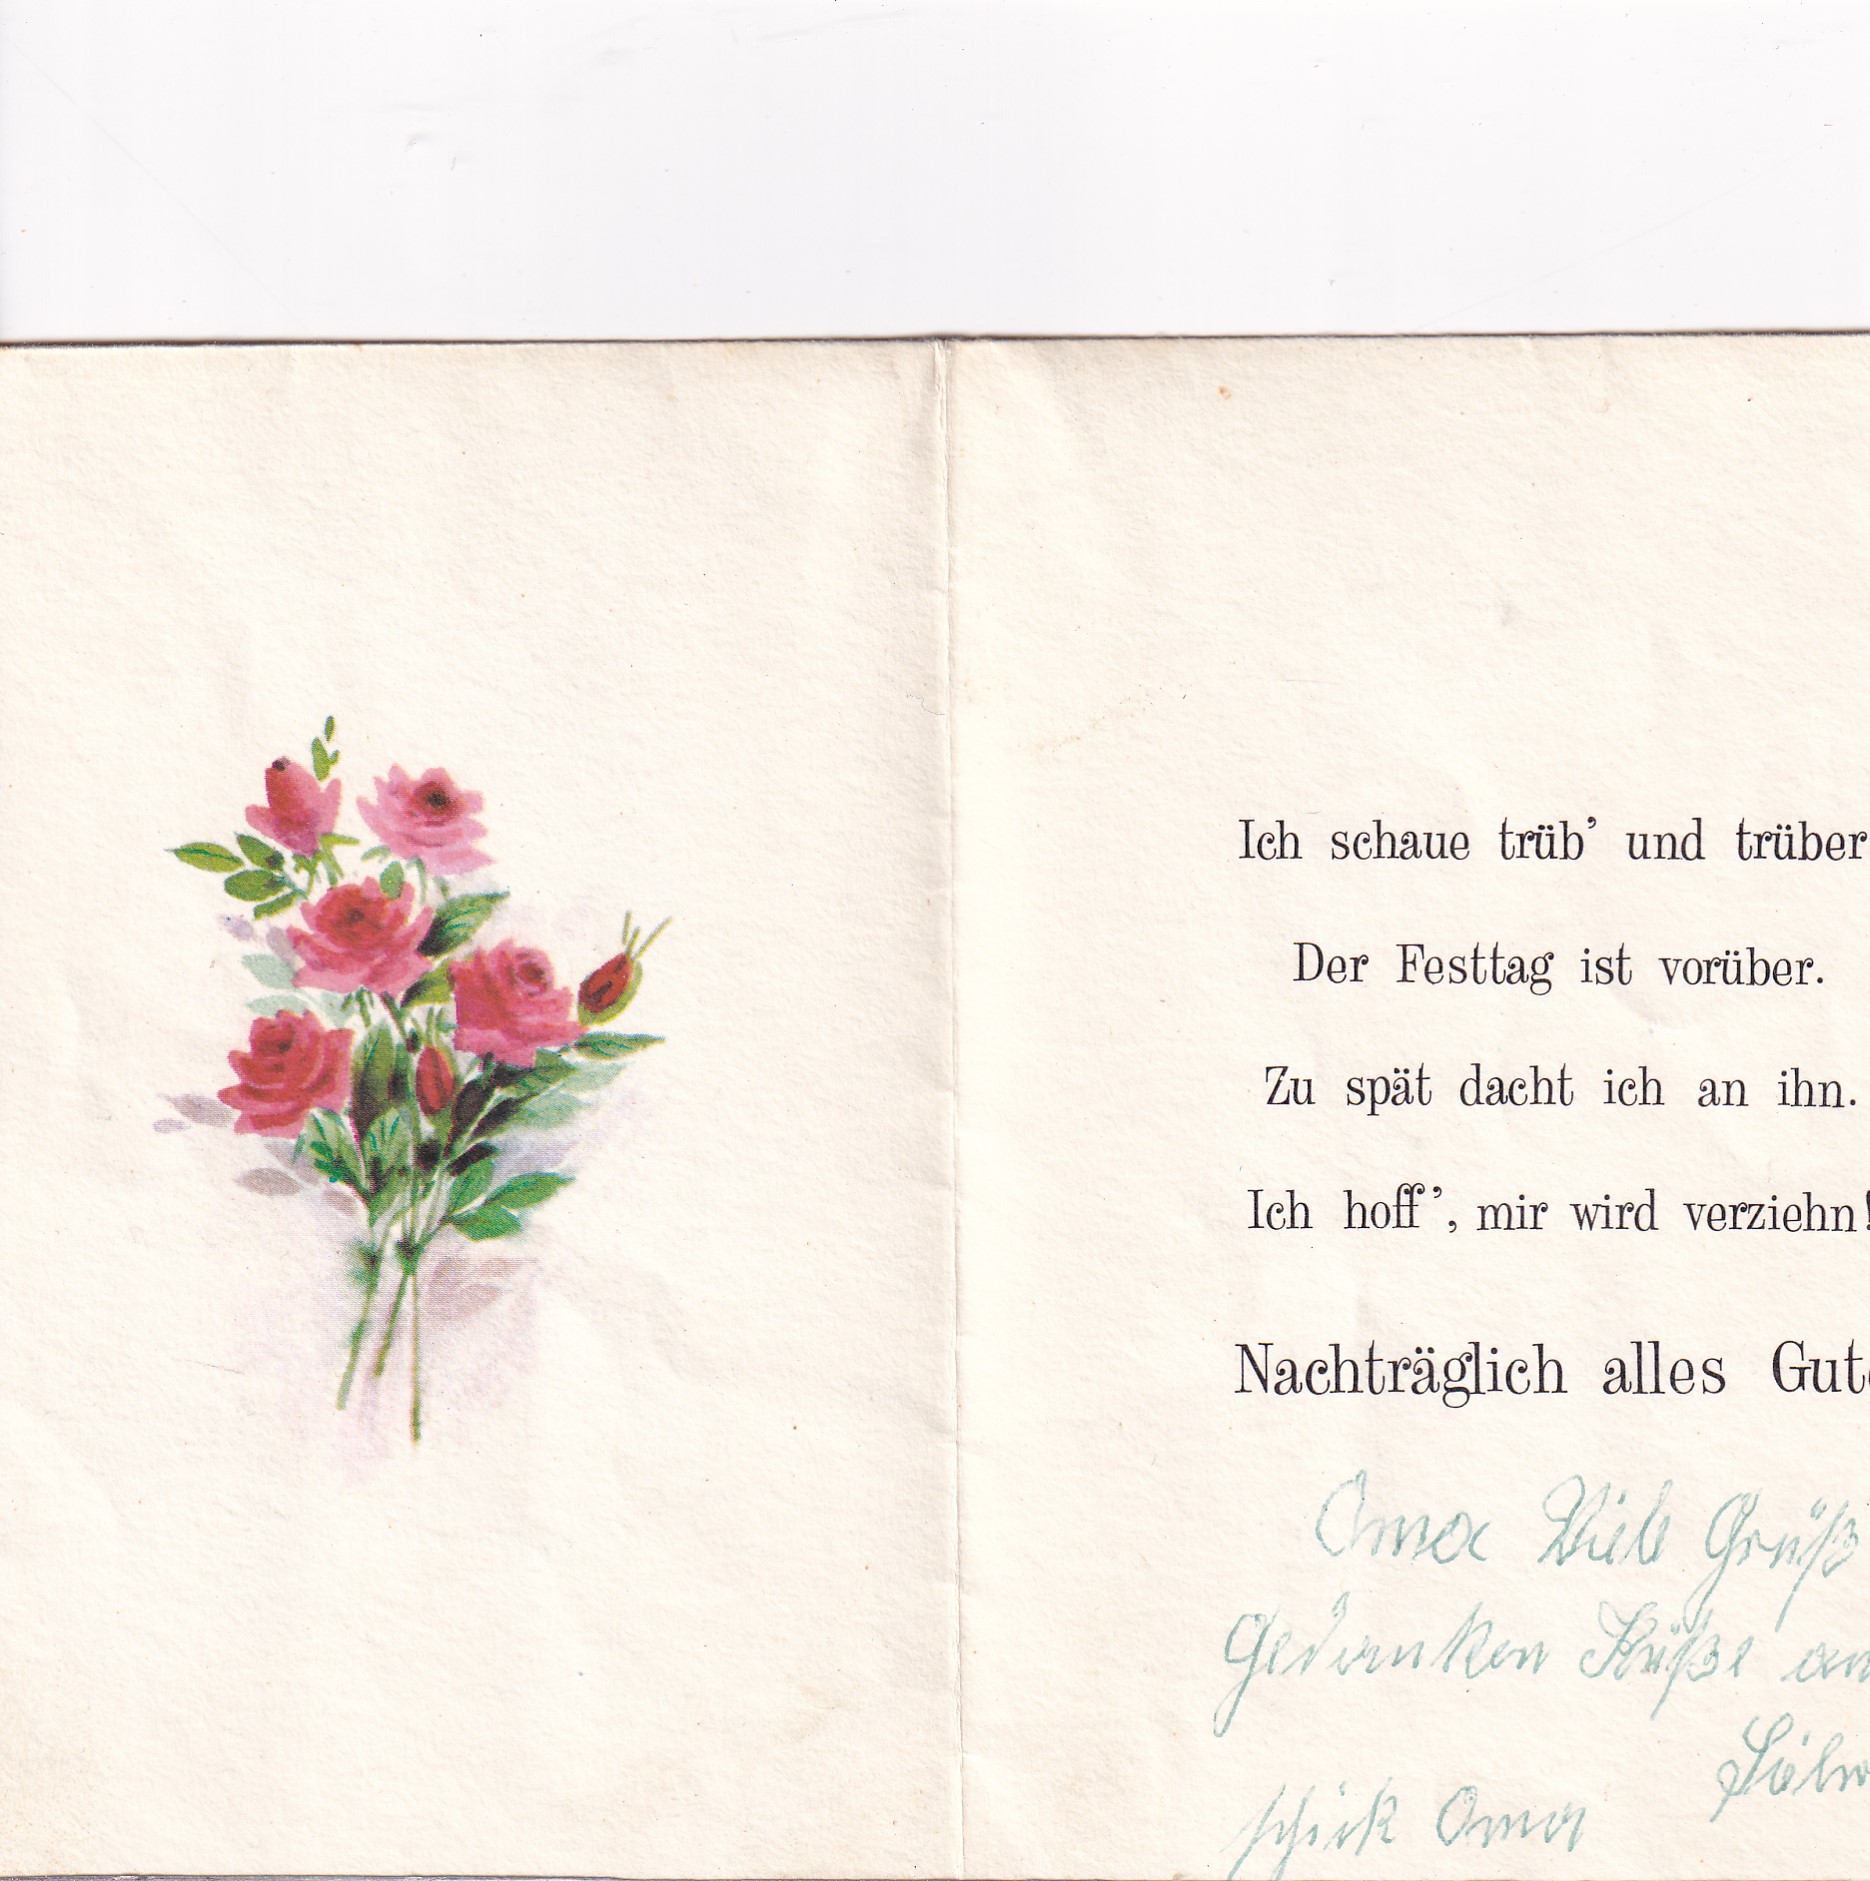 Ich schaue trüb’ und trüber
Der Festtag ist vorüber.
Zu spät dacht ich an ihn.
Ich hoff’, mir wird verziehn!
Nachträglich alles Gute
Oma Viele Grüß
Gedanken Küße an
schick Oma